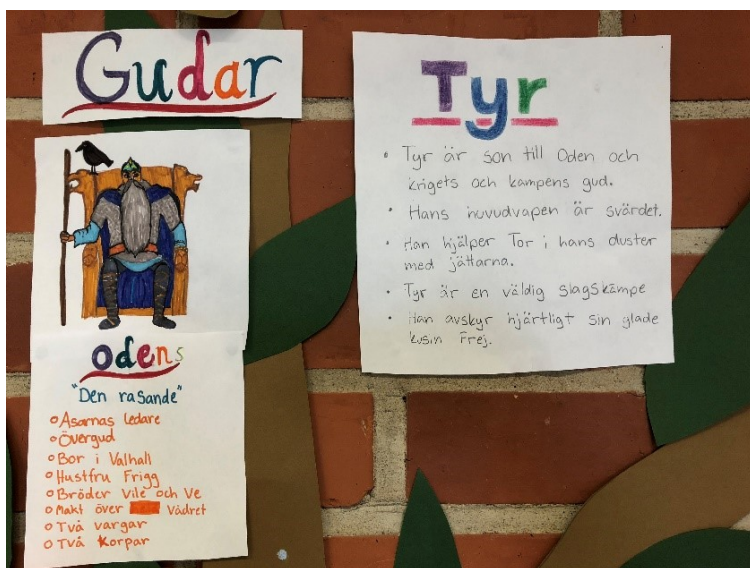 Gudar
Odens
"Den rasande"
Asarnas ledare
Övergud
Bor i Valhall
Hustfru Frigg
Bröder Vile och Ve
Makt över Vädret
Två vargar
Två korpar
Tyr
Tyr är son till Oden och
krigets och kampens gud.
Hans huvudvapen är svärdet.
Han hjälper Tor i hans duster
med jättarna.
Tyr är en väldig slagskämpe
Han avskyr hjärtligt sin glade
kusin Frej.